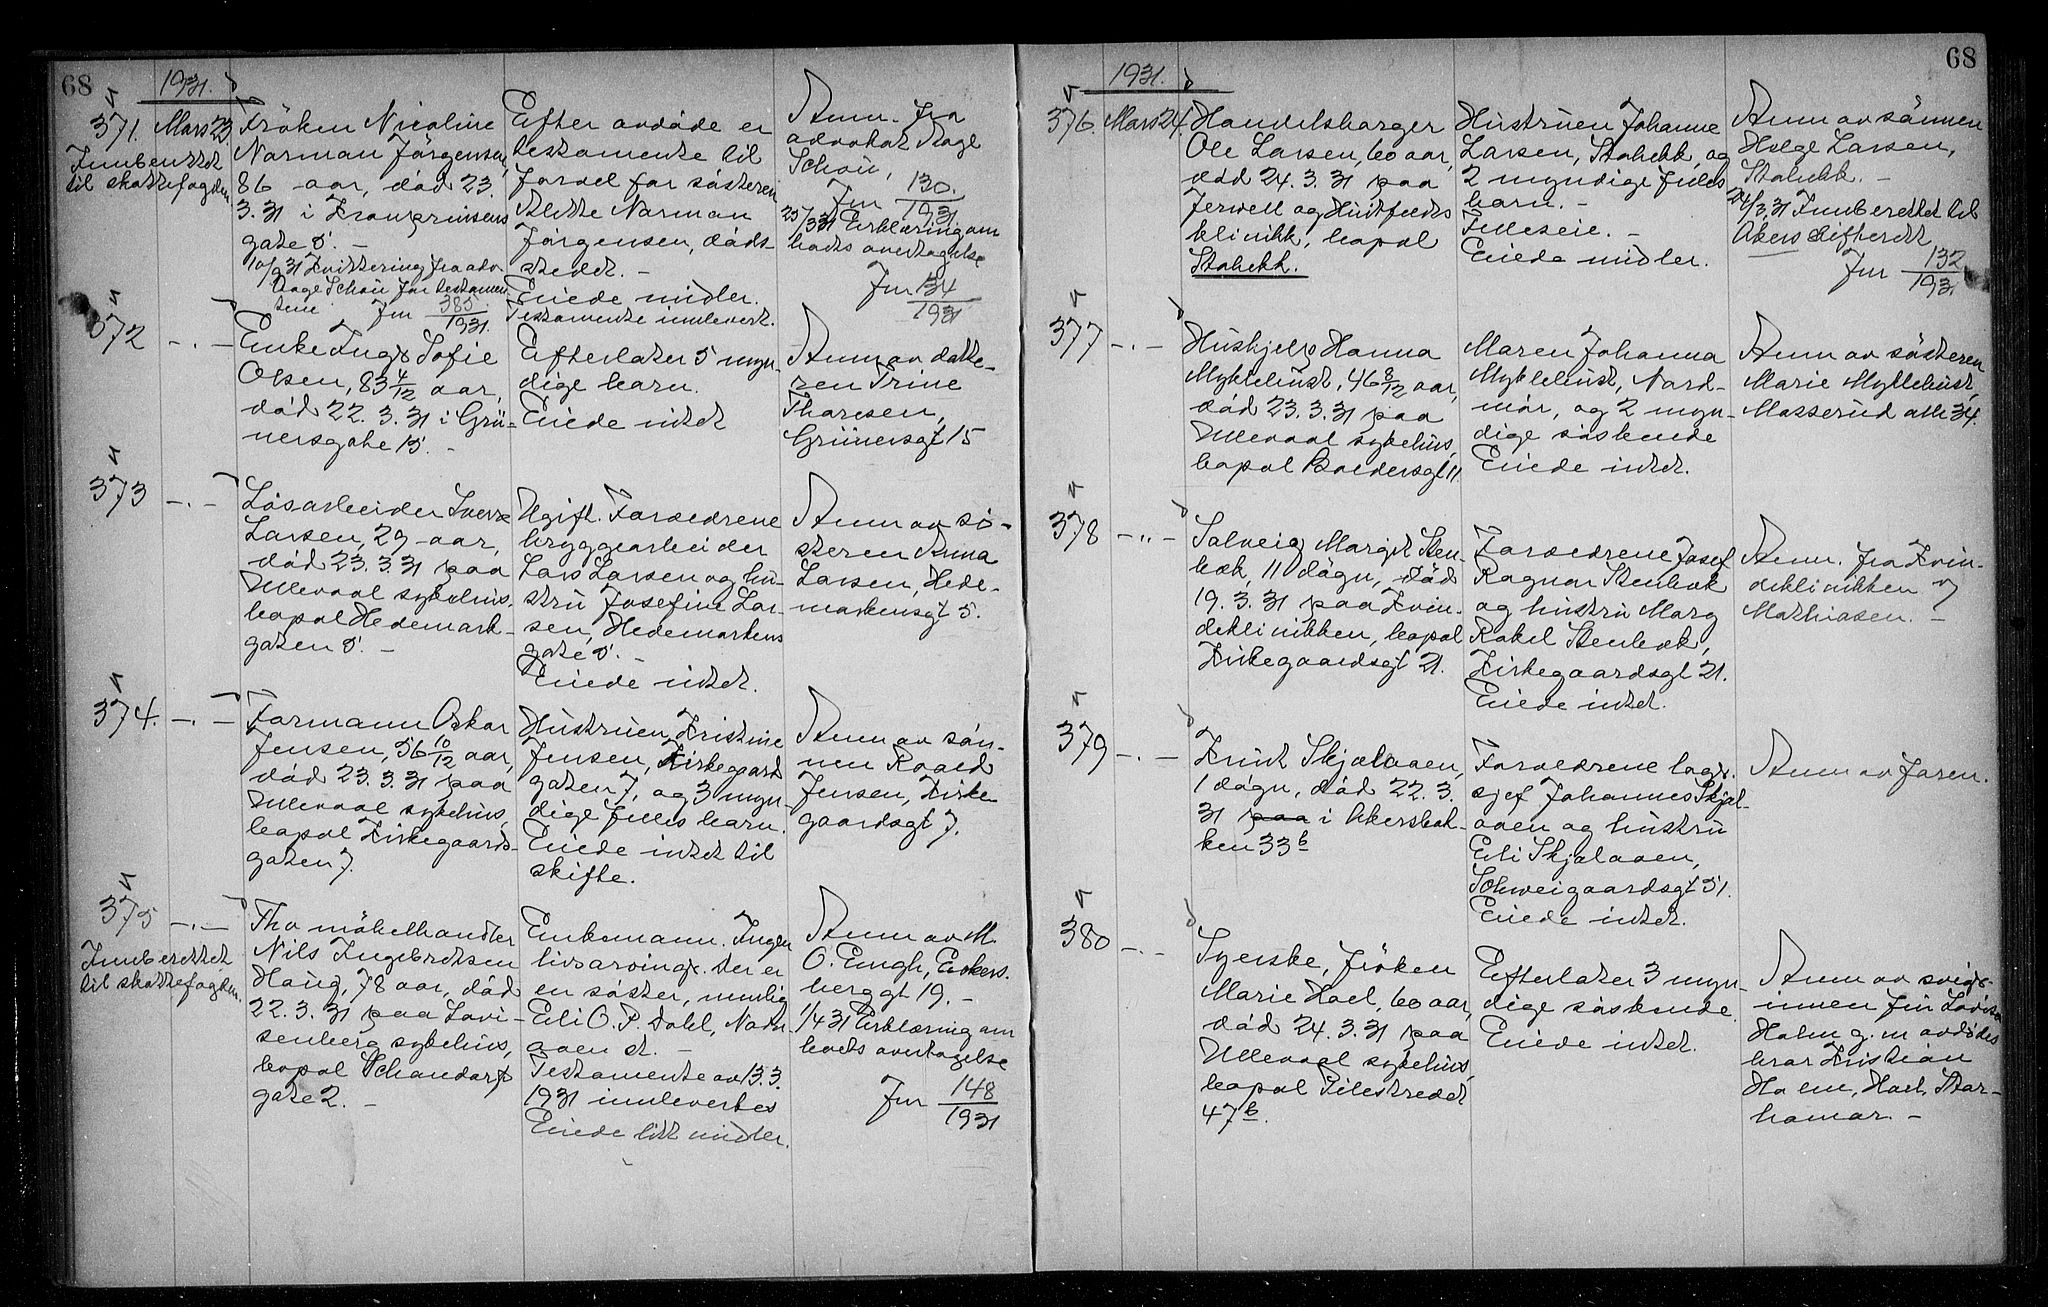 68
1931.
371. Mars 23.
Innberettet
til skattefogden
Fröken Nicoline
Norman Jörgensen,
86 aar, död 23.
3.31 i Kronprinsens
gate 5. -
10/9 31 Kvittering fra adv.
Aage Schou for testamen-
tene. Jnr 385/1931.
Efter avdöde er
testamente til
fordel for sösteren
Alette Norman
Jörgensen, döds-
stedet. -
Eiede midler.
Testamente innlevert.
Anm. fra
advokat Aage
Schou,
Jnr 130./1931
25/3 31 Erklæring om
boets overtagelse
Jnr 134/1931
372 -.-
Enke Inga Sofie
Olsen, 83 4/12 aar,
död 22.3.31 i Grü-
nersgate 15. -
Efterlater 5 myn-
dige barn.
Eiede intet
Anm av datte-
ren Trine
Thoresen,
Grünersgt 15
373 -.-
Lösarbeider Sverre
Larsen, 29 aar,
död 23.3.31 paa
Ullevaal sykehus,
bopal Hedemark-
gaten 5. -
Ugift. Foreldrene
bryggearbeider
Lars Larsen og hu-
stru Josefine Lar-
sen, Hedemarkens
gate 5. -
Eiede intet.
Anm av sö-
steren Anna
Larsen, Hede-
markensgt 5.
374. -.-
Formann Oskar
Jensen, 56 10/12 aar,
död 23.3.31 paa
Ullevaal sykehus,
bopal Kirkegaards-
gaten 7.
Hustruen Kristine
Jensen, Kirkegaard
gaten 7, og 3 myn-
dige felles barn.
Eiede intet til
skifte.
Anm av sön-
nen Roald
Jensen, Kirke
gaardsgt 7.
375 -.-
Innberettet
til skattefogden.
Fhv möbelhandler
Nils Ingebretsen
Haug, 78 aar, död
22.3.31 paa Lovi-
senberg sykehus,
bopal Schandorfs
gate 2. -
Enkemann. Ingen
livsarvinge. Der er
en söster, nemlig
Eli O. P. Dahl,
Testamente av 13.3.
1931 innlevertes
Eiede litt midler.
Anm av M.
O. Engh, Eckers-
berggt 19. -
1/4 31 Erklæring om
boets overtagelse
Jnr 148/1931
68
1931.
376. Mars 24.
Handelsborger
Ole Larsen, 60 aar,
död 24.3.31 paa
Jervell og Huitfeldts
klinikk, bopal
Stabekk.
Hustruen Johanne
Larsen, Stabekk, og
2 myndige felles
barn. -
Felleseie. -
Eiede midler.
Anm av sönnen
Helge Larsen,
Stabekk. -
24/3 31 Innberettet til
Akers skifterett
Jnr 132/1931
377 -.-
Hushjelp Hanna
Myklebust, 46 8/12 aar,
död 23.3.31 paa
Ullevaal sykehus,
bopal Boldersgt 11.
Maren Johanna
Myklebust, Nord-
mör, og 2 myn-
dige söskende
Eiede intet.
Anm av sösteren
Marie Myklebust,
Masserud alle 34.
378 -.-
Solveig Margit Sten-
bæk, 11 dögn, död
19.3.31 paa Kvin-
deklinikken, bopal
Kirkegaardsgt 21.
Foreldrene Josef
Ragnar Stenbæk
og hustru Marg
Rakel Stenbæk,
Kirkegaardsgt 21.
Eiede intet.
Anm. fra Kvin-
deklinikken v
Mathiasen. -
379 -.-
Knut Skjølaaen,
1 dögn, död 22.3.
31 paa i Akersbak-
ken 33 b
Foreldrene lager-
sjef Johannes Skjøl-
aaen og hustru
Eli Skjølaaen,
Schweigaardsgt 51.
Eiede intet.
Anm av faren.
380 -.-
Syerske, fröken
Marie Hoel, 60 aar,
död 24.3.31 paa
Ullevaal sykehus,
bopal Pilestredet
47 b.
Efterlater 3 myn-
dige söskende.
Eiede intet.
Anm av svige-
innen fru Lovise
Holm g. m avdödes
bror Kristian
Holm, Hoel, Stor-
hamar. -